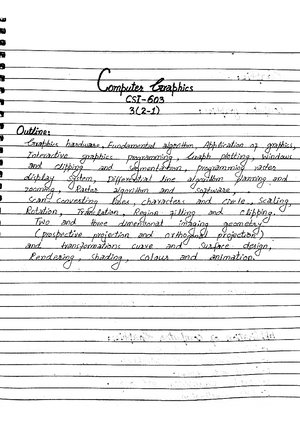 Computer Graphics
CSI-603
3(2-1)
Outline:
Graphics hardware, Fundamental algorithm, Application of graphics,
Interactive graphics programming, Graph plotting, Windows
and clipping and segmentation, programming raster
display system, Differential line algorithm panning and
zooming, Raster algorithm and software,
Scan converting lines, characters and circle, Scaling,
Rotation, Translation, Region filling and clipping.
Two and three dimentional imaging geometry
(prospective projection and orthogonal projection)
and transformations curve and surface design,
Rendering, shading, colour and animation.